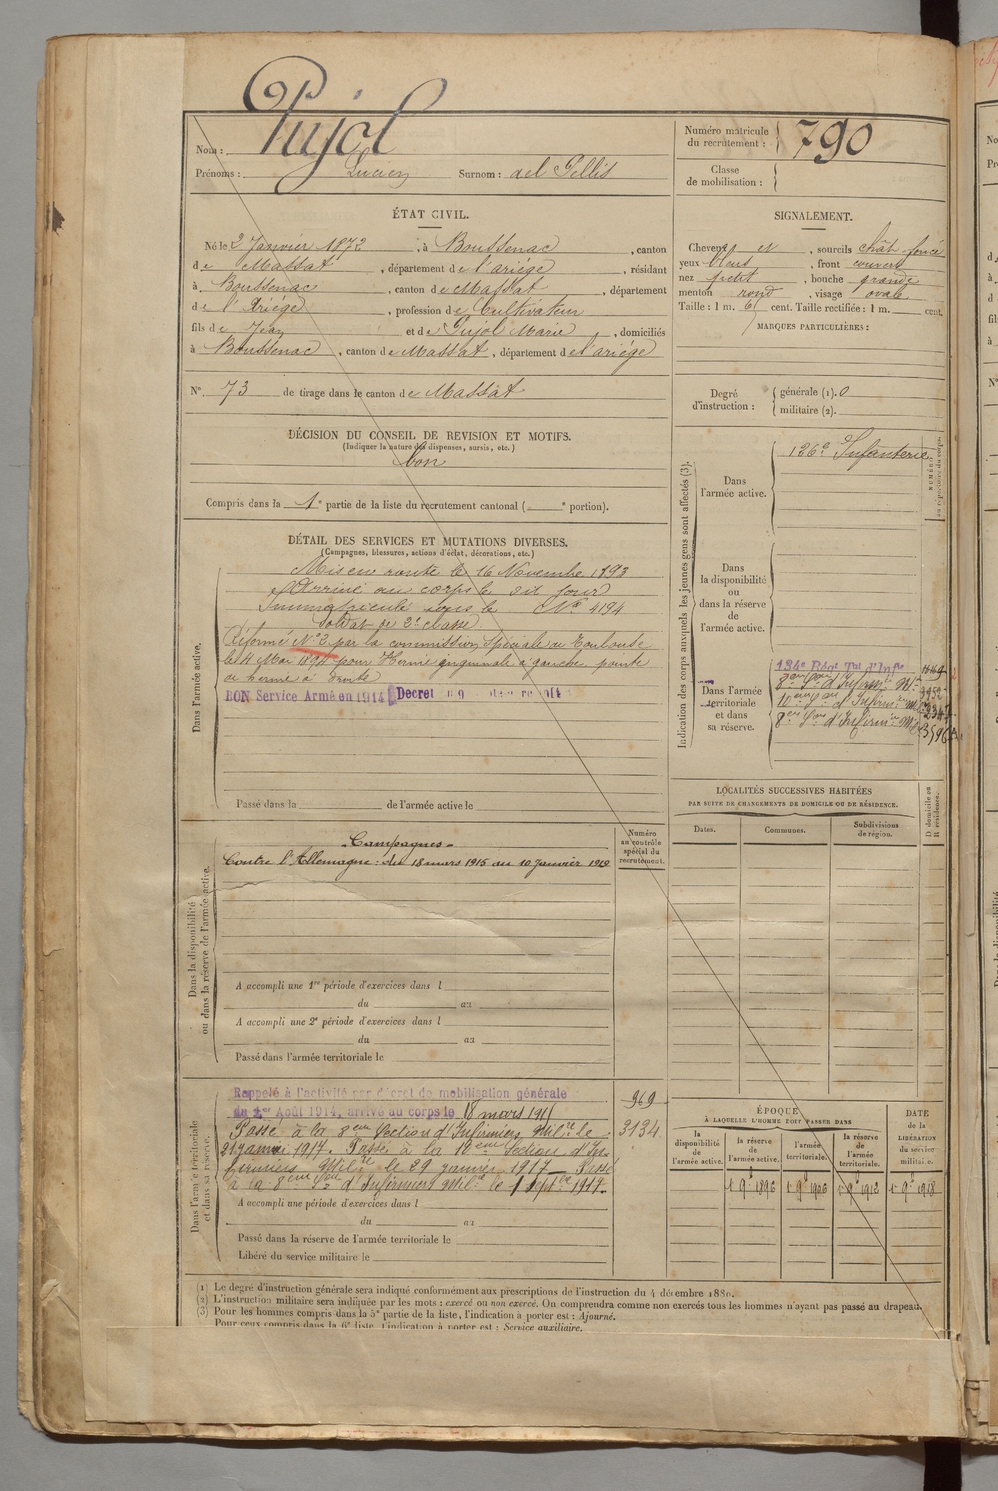 Pujol
Nom :
Prénoms : Lucien Surnom : del Pellis
Numéro matricule du recrutement : 790
Classe de mobilisation :
ÉTAT CIVIL.
Né le 2 Janvier 1872, à Boussenac, canton
de Massat, département de l'ariége, résidant
à Boussenac, canton de Massat, département
de l'Ariége, profession de Cultivateur
fils de Jean et de Pujol Marie, domiciliés
à Boussenac, canton de Massat, département de l'ariége
N° 73 de tirage dans le canton de Massat
SIGNALEMENT.
Cheveux et, sourcils chât. foncé
yeux bleus, front couvert
nez petit, bouche grande
menton rond, visage ovale
Taille : 1 m. 61 cent. Taille rectifiée : 1 m. cent.
MARQUES PARTICULIÈRES :
Degré d'instruction : générale (1). 0
militaire (2).
DÉCISION DU CONSEIL DE REVISION ET MOTIFS.
(Indiquer la nature des dispenses, sursis, etc.)
bon
Compris dans la 1e partie de la liste du recrutement cantonal ( e portion).
DÉTAIL DES SERVICES ET MUTATIONS DIVERSES.
(Campagnes, blessures, actions d'éclat, décorations, etc.)
Dans l'armée active.
Mis en route le 16 Novembre 1893
Arrivé au corps le dit jour
Immatriculé sous le N° 4194
Soldat de 2e classe
Réformé N° 2 par la commission Spéciale de Toulouse
le 4 Mai 1894 pour Hernie inguinale à gauche pointe
de hernie à droite
BON Service Armé en 1914 Decret
Passé dans la de l'armée active le
Indication des corps auxquels les jeunes gens sont affectés (3).
Dans l'armée active.
126e Infanterie
NUMÉRO
Dans la disponibilité ou dans la réserve de l'armée active.
Dans l'armée territoriale et dans sa réserve.
134e Régt Tal d'Infie
8eme Son d'Infirm. Mil. 3952
10eme Son d'Infirm. Mil. 2347
8eme Son d'Infirm. Mil. 3596
LOCALITÉS SUCCESSIVES HABITÉES
PAR SUITE DE CHANGEMENTS DE DOMICILE OU DE RÉSIDENCE.
Dates.
Communes.
Subdivisions de région.
D domicile ou R résidence.
Dans la disponibilité ou dans la réserve de l'armée active.
Numéro au contrôle spécial du recrutement.
Campagnes
Contre l'Allemagne : du 18 mars 1915 au 10 janvier 1919
A accompli une 1re période d'exercices dans l
du au
A accompli une 2e période d'exercices dans l
du au
Passé dans l'armée territoriale le
Dans l'armée territoriale et dans sa réserve.
Rappelé à l'activité par décret de mobilisation générale
du 2er Août 1914, arrivé au corps le 18 mars 1915
969
Passé à la 8eme Section d'Infirmiers Milre le
3134
21 janvier 1917. Passé à la 10eme Section d'In-
firmiers Milre le 29 janvier 1917 Passé
à la 8eme Son d'Infirmiers Milre le 1 septbre 1917.
A accompli une période d'exercices dans l
du au
Passé dans la réserve de l'armée territoriale le
Libéré du service militaire le
ÉPOQUE
À LAQUELLE L'HOMME DOIT PASSER DANS
la disponibilité de l'armée active.
la réserve de l'armée active.
l'armée territoriale.
la réserve de l'armée territoriale.
DATE de la LIBÉRATION du service militaire.
1 9e 1896
1 9e 1906
1 9e 1912
1 9e 1918
(1) Le degré d'instruction générale sera indiqué conformément aux prescriptions de l'instruction du 4 décembre 1889.
(2) L'instruction militaire sera indiquée par les mots : exercé ou non exercé. On comprendra comme non exercés tous les hommes n'ayant pas passé au drapeau.
(3) Pour les hommes compris dans la 5e partie de la liste, l'indication à porter est : Ajourné.
Pour ceux compris dans la 6e liste, l'indication à porter est : Service auxiliaire.